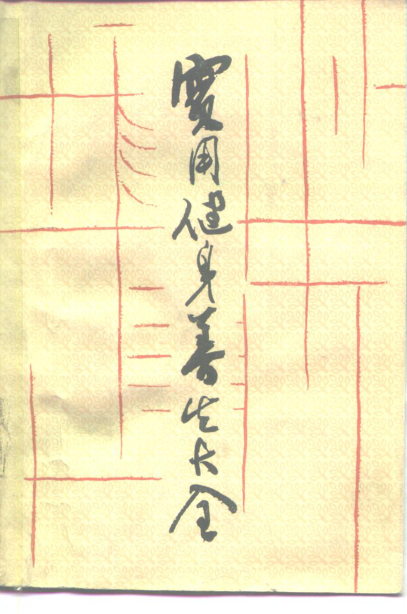 實用健身養生大全